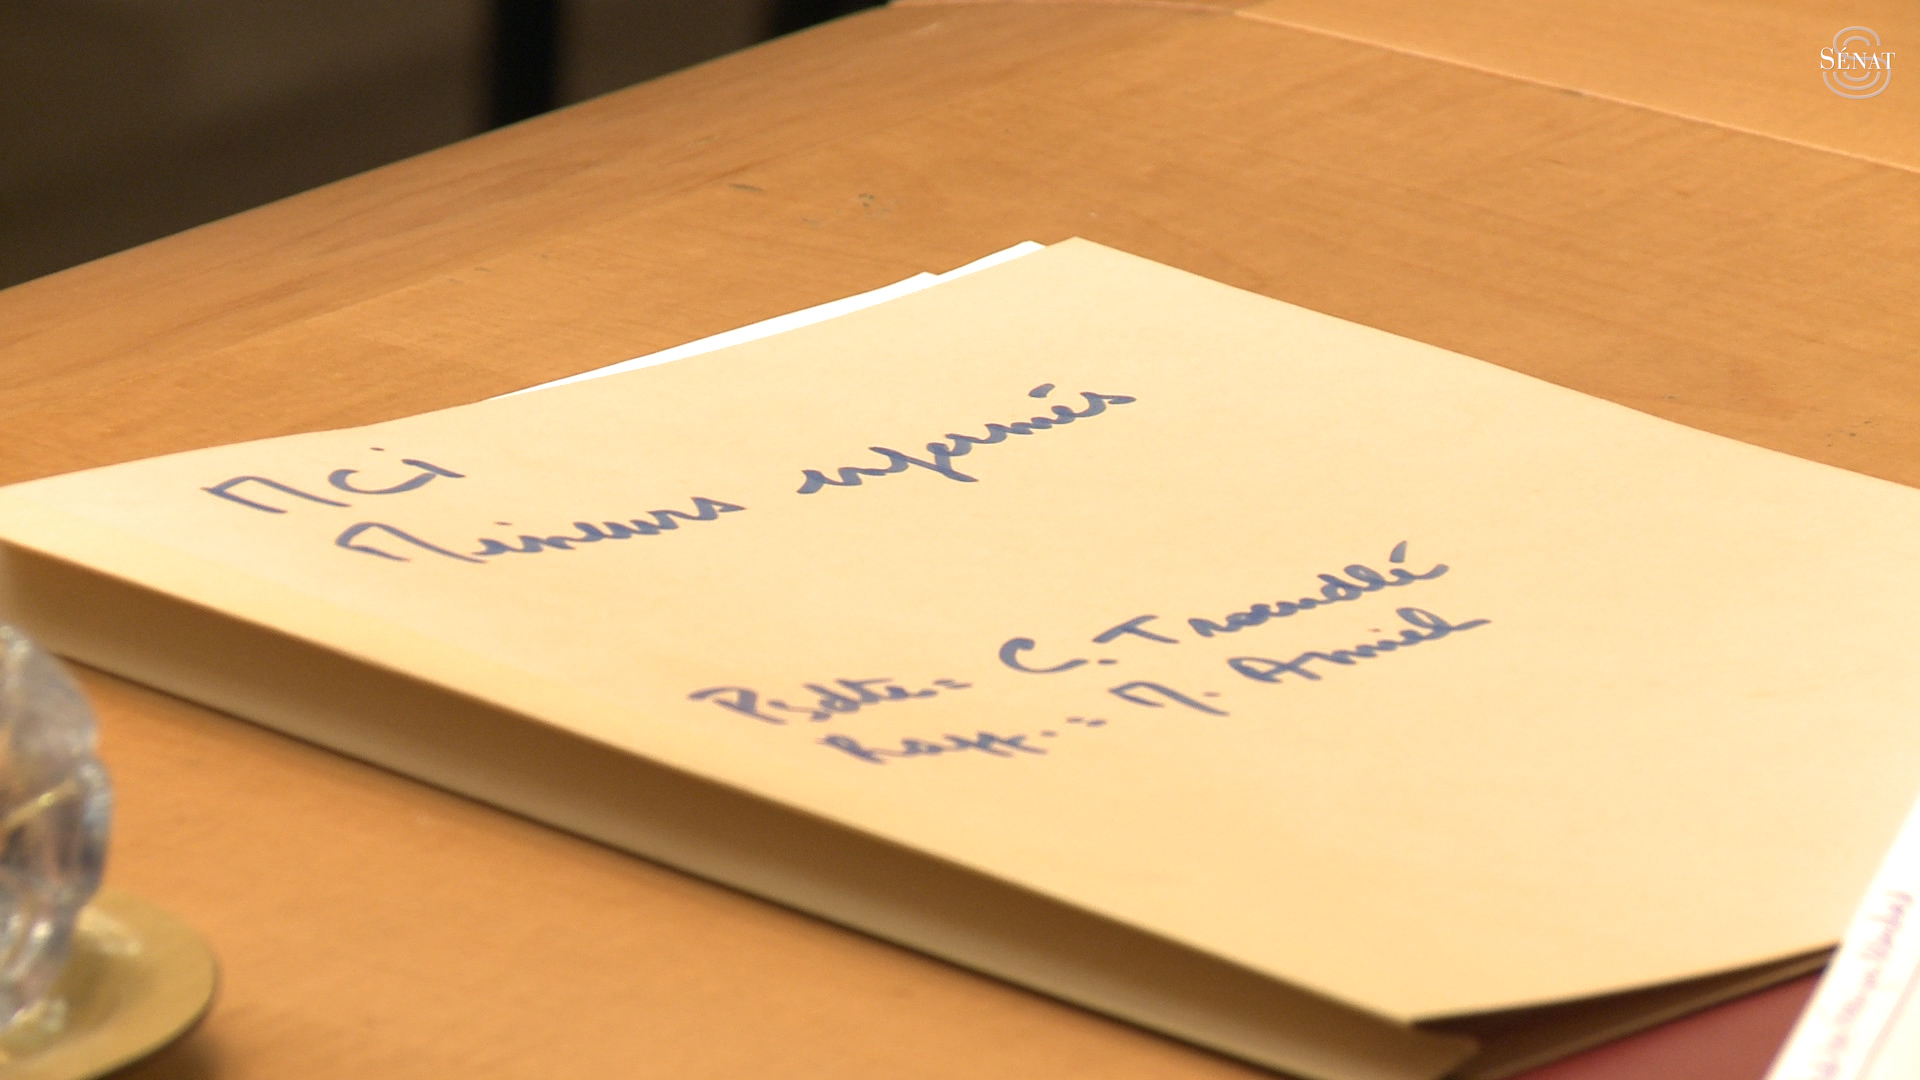 SÉNAT
MCi
Mineurs enfermés
Pisdte = C. Troendlé
Rapp. = M. Amiel